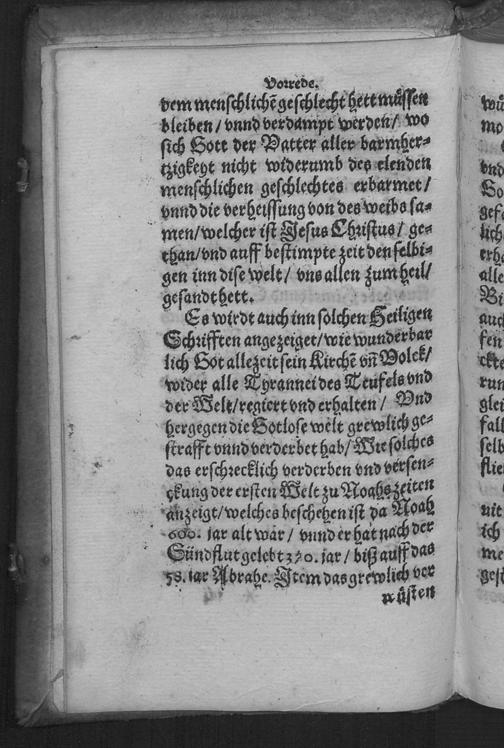 Vorrede.
dem menschlichē geschlecht hett muͤssen
bleiben / vnnd verdampt werden / wo
sich Gott der Vatter aller barmher-
tzigkeyt nicht widerumb des elenden
menschlichen geschlechtes erbarmet /
vnnd die verheissung von des weibs sa-
men / welcher ist Jesus Christus / ge-
than / vnd auff bestimpte zeit denselbi-
gen inn dise welt / vns allen zum heil /
gesandt hett.
Es wirdt auch inn solchen Heiligen
Schrifften angezeiget / wie wunderbar
lich Got allezeit sein Kirchē vn̄ Volck /
wider alle Tyrannei des Teufels vnd
der Welt / regiert vnd erhalten / Vnd
hergegen die Gotlose welt grewlich ge-
strafft vnnd verderbet hab / Wie solches
das erschrecklich verderben vnd versen-
ckung der ersten Welt zu Noahs zeiten
anzeigt / welches beschehen ist da Noah
600. jar alt war / vnnd er hat nach der
Suͤndflut gelebt 350. jar / biß auff das
58. jar Abrahe. Item das grewlich ver
wuͤsten
wuͤ
mo
vnd
So
gefa
lich
erha
alle
Bi
auch
fen
ckte
run
glei
fall
selb
flie
nit
ich
me
gest